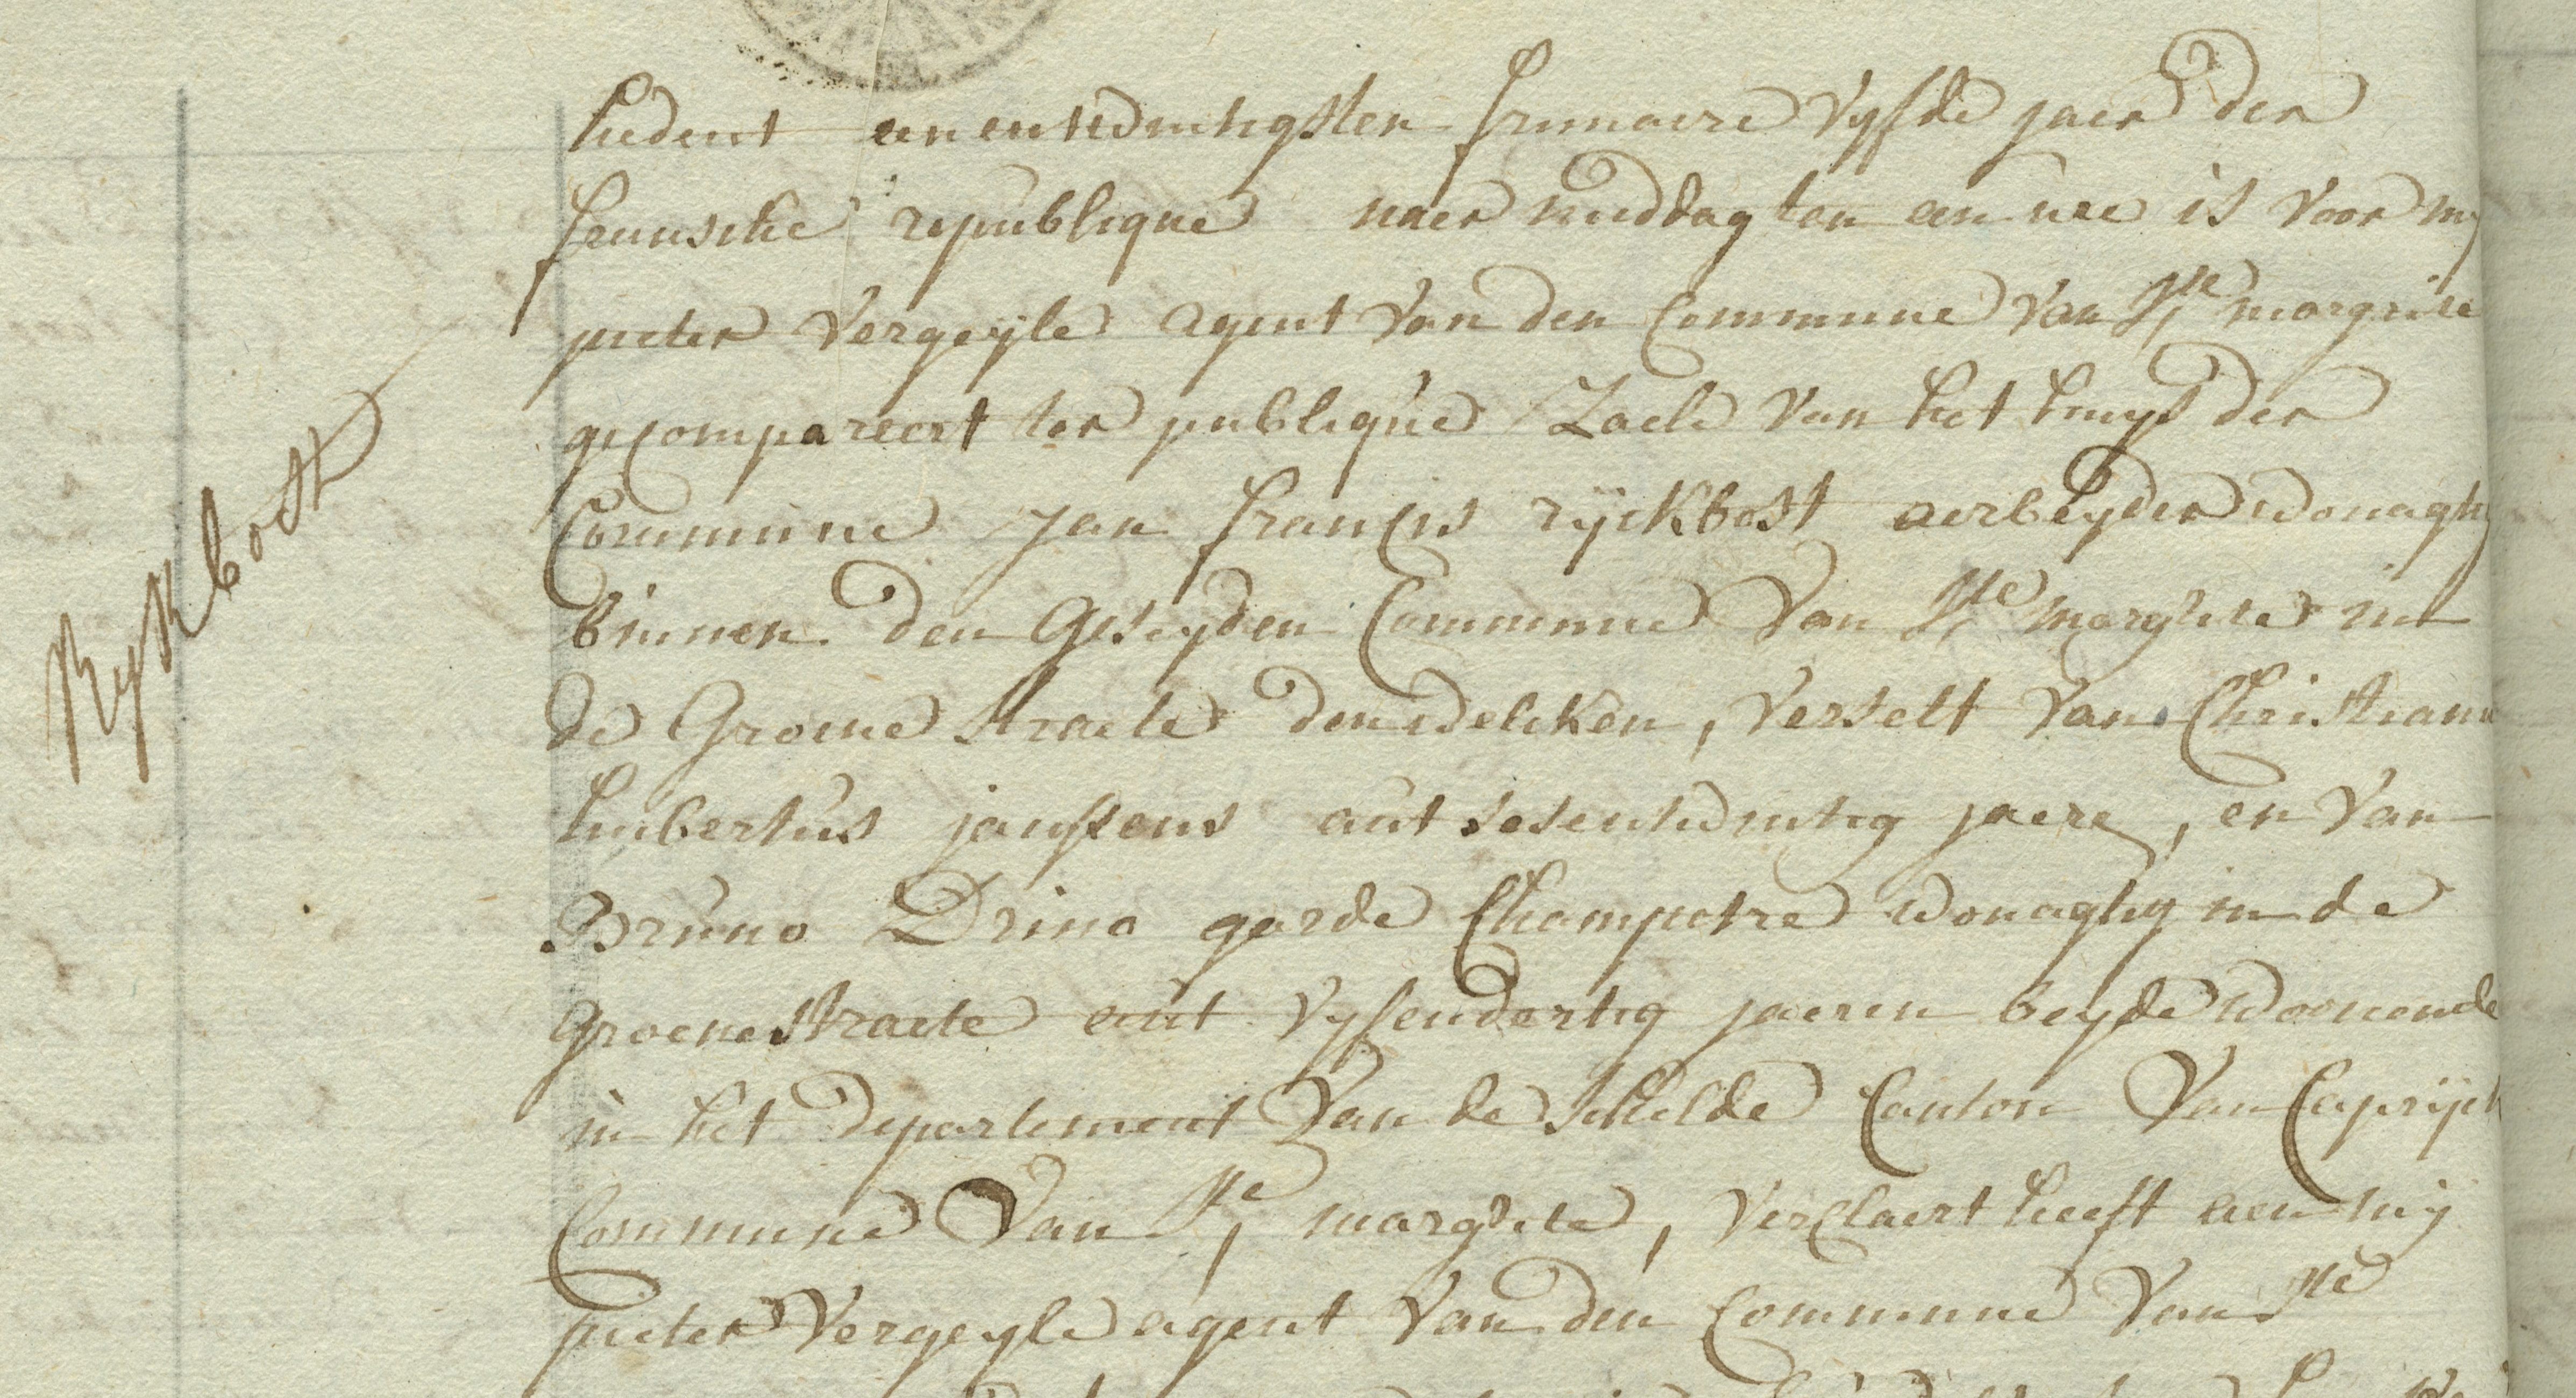 Rykbost
hedent eenentwintigsten frimaire vyfde jaer der
fransche republique naer middag ten een ure is voor my
pieter Vergeyle agent van den Commune van Ste margriete
gecompareert ter publique Zaele van het huys der
Commune jan francis rijckbost aerbeyder wonagtig
binnen den geseyden Commune van Ste margriete in
de Groene straete den welcken, verselt van Christianus
hubertus janssens aut sesentwintig jaere, en van
Bruno Drina garde Champetre wonagtig in de
groenestraete aut vyfendertig jaeren beyde woonende
in het departement van de schelde Canton van Caprijck
Commune van Ste margriete, verclaert heeft aen mij
pieter Vergeyle agent van den Commune van Ste